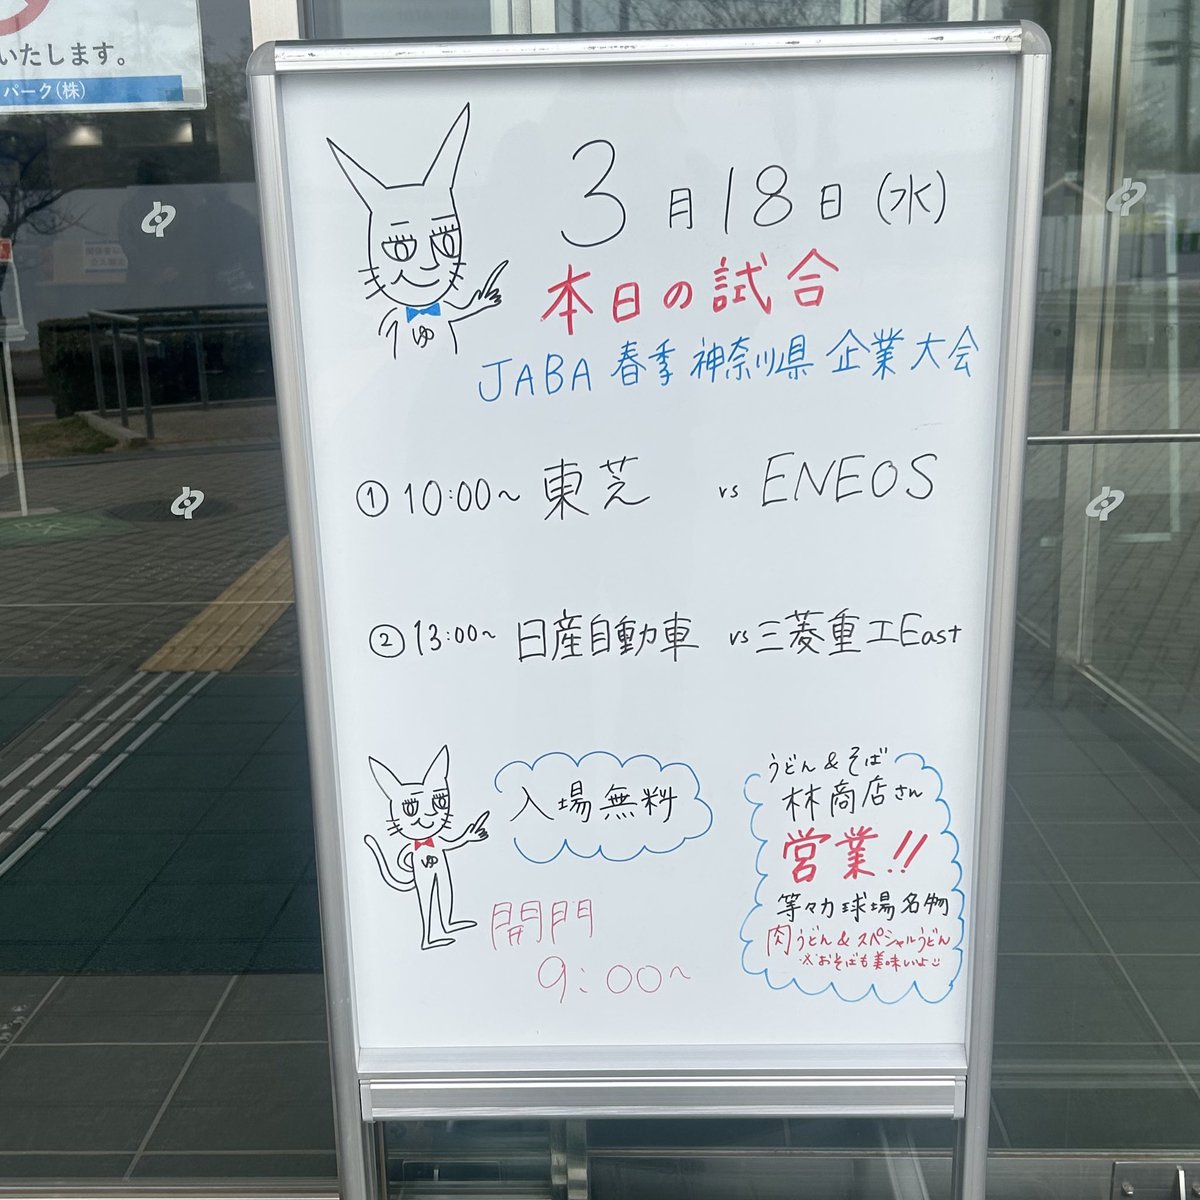 いたします。
パーク(株)
3月18日(水)
本日の試合
JABA 春季 神奈川県 企業大会
①10:00~ 東芝 vs ENEOS
②13:00~ 日産自動車 vs 三菱重工East
ゆ
ゆ
入場無料
開門
9:00~
うどん&そば
林商店さん
営業!!
等々力球場名物
肉うどん&スペシャルうどん
※おそばも美味いよ